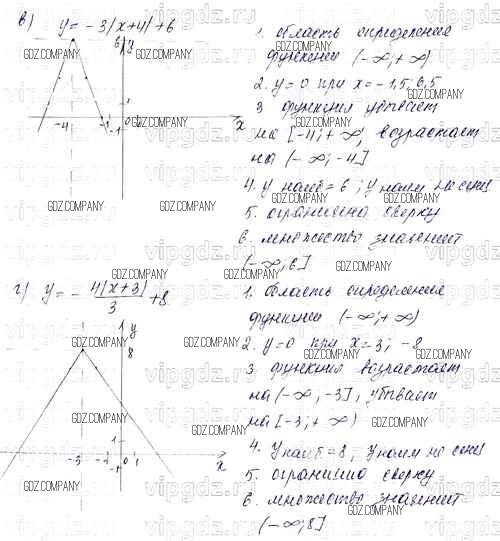 в) y = -3|x+4|+6
1. область определения
функции (-∞; +∞)
2. y=0 при x=-1,5; 6,5
3 функция убывает
на [-4; +∞, возрастает
на (-∞; -4]
4. y наиб = 6; y наим не сущ
5. ограничена сверху
6. множество значений
(-∞; 6]
6 y
1
-4 -1 0 1 x
-1
г) y = - 4|x+3| / 3 +8
1. область определения
функции (-∞; +∞)
2. y=0 при x=3; -8
3 функция возрастает
на (-∞; -3], убывает
на [-3; +∞)
4. y наиб = 8, y наим не сущ
5. ограничено сверху
6. множество значений
(-∞; 8]
y
8
1
-3 -1 0 1 x
-1
GDZ.COMPANY
vipgdz.ru